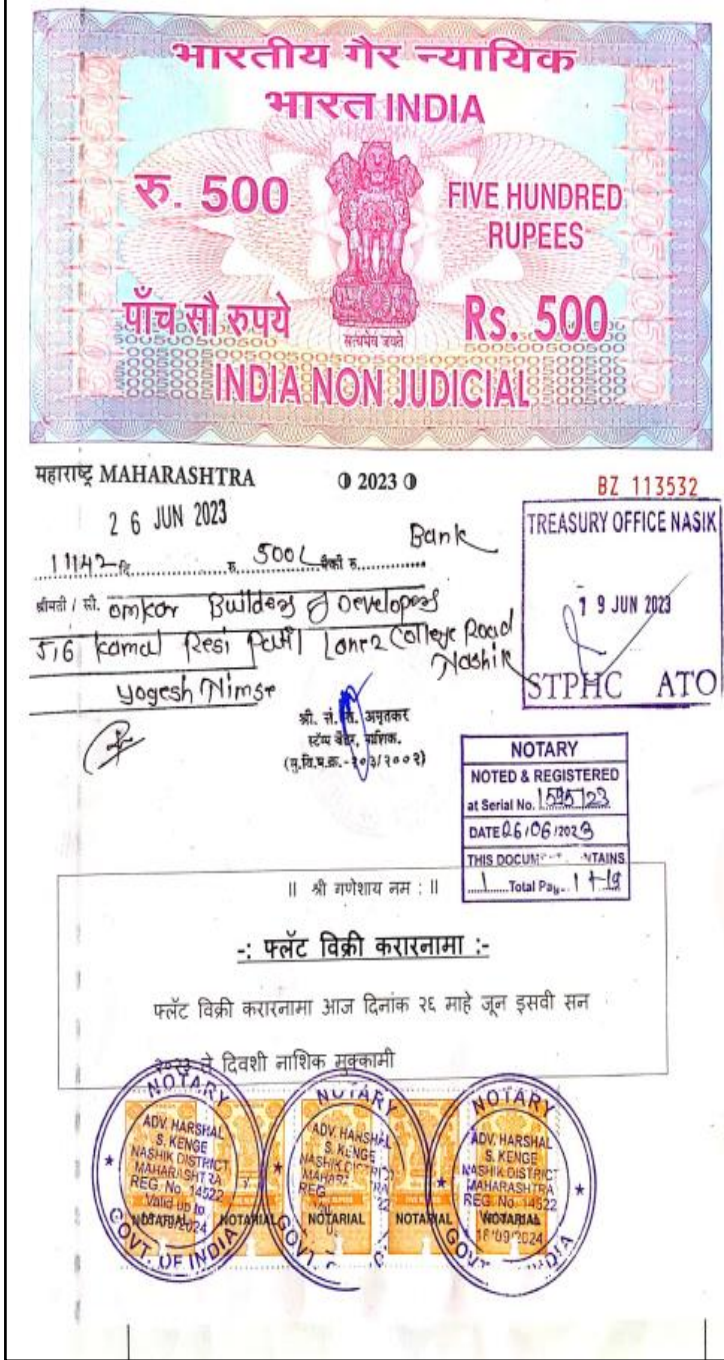 भारतीय गैर न्यायिक
भारत INDIA
रु. 500
FIVE HUNDRED
RUPEES
पाँच सौ रुपये
Rs. 500
सत्यमेव जयते
INDIA NON JUDICIAL
महाराष्ट्र MAHARASHTRA
2023
BZ 113532
26 JUN 2023
TREASURY OFFICE NASIK
19 JUN 2023
STPHC ATO
Bank
11142 दि. रु. 500/- पैकी रु.
श्रीमती / सौ. Omkar Builders & Developers
5,6 Kamal Resi Patil Lane 2 College Road
Nashik
Yogesh Nimse
श्री. अमृतकर
स्टॅम्प वेंडर, नाशिक.
(मु.वि.प.क्र.-२०३/२००२)
NOTARY
NOTED & REGISTERED
at Serial No. 1595/23
DATE 26/06/2023
THIS DOCUM NTAINS
1 Total Pag 1 + 19
॥ श्री गणेशाय नम : ॥
-: फ्लॅट विक्री करारनामा :-
फ्लॅट विक्री करारनामा आज दिनांक २६ माहे जून इसवी सन
२०२३ ते दिवशी नाशिक मुक्कामी
NOTARY
ADV. HARSHAL
S. KENGE
NASHIK DISTRICT
MAHARASHTRA
REG. No. 14522
Valid up to
18/09/2024
NOTARIAL
GOVT. OF INDIA
NOTARIAL
FIVE RUPEES
NOTARY
ADV. HARSHAL
S. KENGE
NASHIK DISTRICT
REG
NOTARIAL
GOVT.
NOTARIAL
NOTARY
ADV. HARSHAL
S. KENGE
NASHIK DISTRICT
MAHARASHTRA
REG. No. 14522
18/09/2024
NOTARIAL
GOVT. INDIA